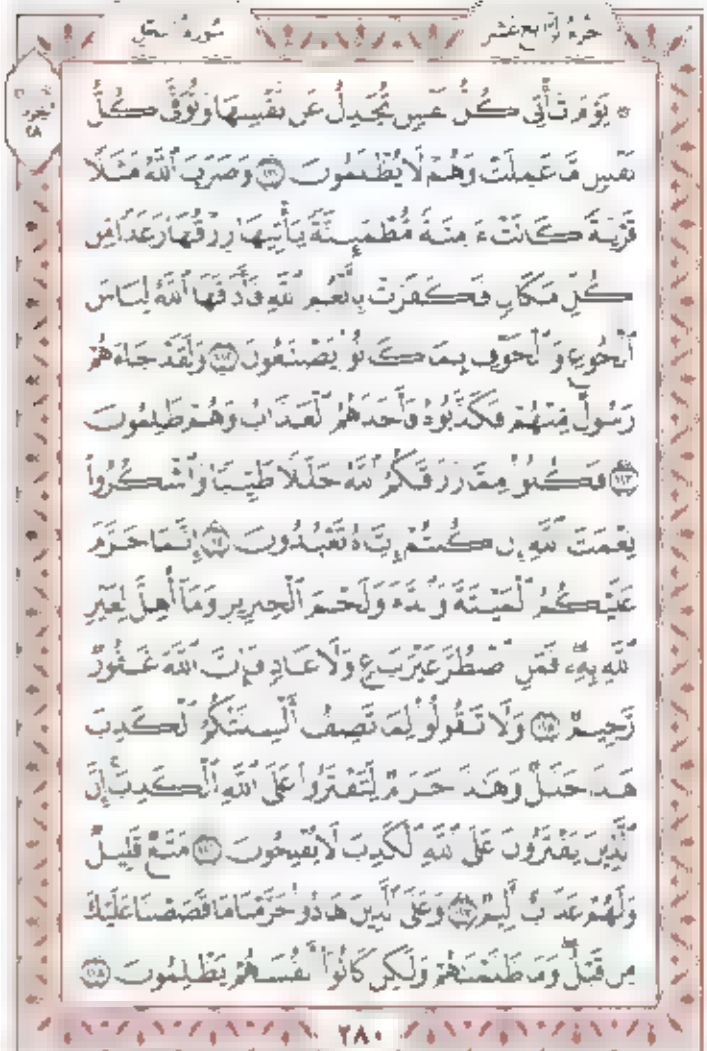 سورة النحل
الجزء الرابع عشر
۞ يَوْمَ تَأْتِي كُلُّ نَفْسٍ تُجَادِلُ عَن نَّفْسِهَا وَتُوَفَّىٰ كُلُّ
نَفْسٍ مَّا عَمِلَتْ وَهُمْ لَا يُظْلَمُونَ ١١١ وَضَرَبَ ٱللَّهُ مَثَلًا
قَرْيَةً كَانَتْ ءَامِنَةً مُّطْمَئِنَّةً يَأْتِيهَا رِزْقُهَا رَغَدًا مِّن
كُلِّ مَكَانٍ فَكَفَرَتْ بِأَنْعُمِ ٱللَّهِ فَأَذَٰقَهَا ٱللَّهُ لِبَاسَ
ٱلْجُوعِ وَٱلْخَوْفِ بِمَا كَانُوا۟ يَصْنَعُونَ ١١٢ وَلَقَدْ جَآءَهُمْ
رَسُولٌ مِّنْهُمْ فَكَذَّبُوهُ فَأَخَذَهُمُ ٱلْعَذَابُ وَهُمْ ظَٰلِمُونَ
١١٣ فَكُلُوا۟ مِمَّا رَزَقَكُمُ ٱللَّهُ حَلَٰلًا طَيِّبًا وَٱشْكُرُوا۟
نِعْمَتَ ٱللَّهِ إِن كُنتُمْ إِيَّاهُ تَعْبُدُونَ ١١٤ إِنَّمَا حَرَّمَ
عَلَيْكُمُ ٱلْمَيْتَةَ وَٱلدَّمَ وَلَحْمَ ٱلْخِنزِيرِ وَمَآ أُهِلَّ لِغَيْرِ
ٱللَّهِ بِهِۦ فَمَنِ ٱضْطُرَّ غَيْرَ بَاغٍ وَلَا عَادٍ فَإِنَّ ٱللَّهَ غَفُورٌ
رَّحِيمٌ ١١٥ وَلَا تَقُولُوا۟ لِمَا تَصِفُ أَلْسِنَتُكُمُ ٱلْكَذِبَ
هَٰذَا حَلَٰلٌ وَهَٰذَا حَرَامٌ لِّتَفْتَرُوا۟ عَلَى ٱللَّهِ ٱلْكَذِبَ إِنَّ
ٱلَّذِينَ يَفْتَرُونَ عَلَى ٱللَّهِ ٱلْكَذِبَ لَا يُفْلِحُونَ ١١٦ مَتَٰعٌ قَلِيلٌ
وَلَهُمْ عَذَابٌ أَلِيمٌ ١١٧ وَعَلَى ٱلَّذِينَ هَادُوا۟ حَرَّمْنَا مَا قَصَصْنَا عَلَيْكَ
مِن قَبْلُ وَمَا ظَلَمْنَٰهُمْ وَلَٰكِن كَانُوٓا۟ أَنفُسَهُمْ يَظْلِمُونَ ١١٨
٢٨٠